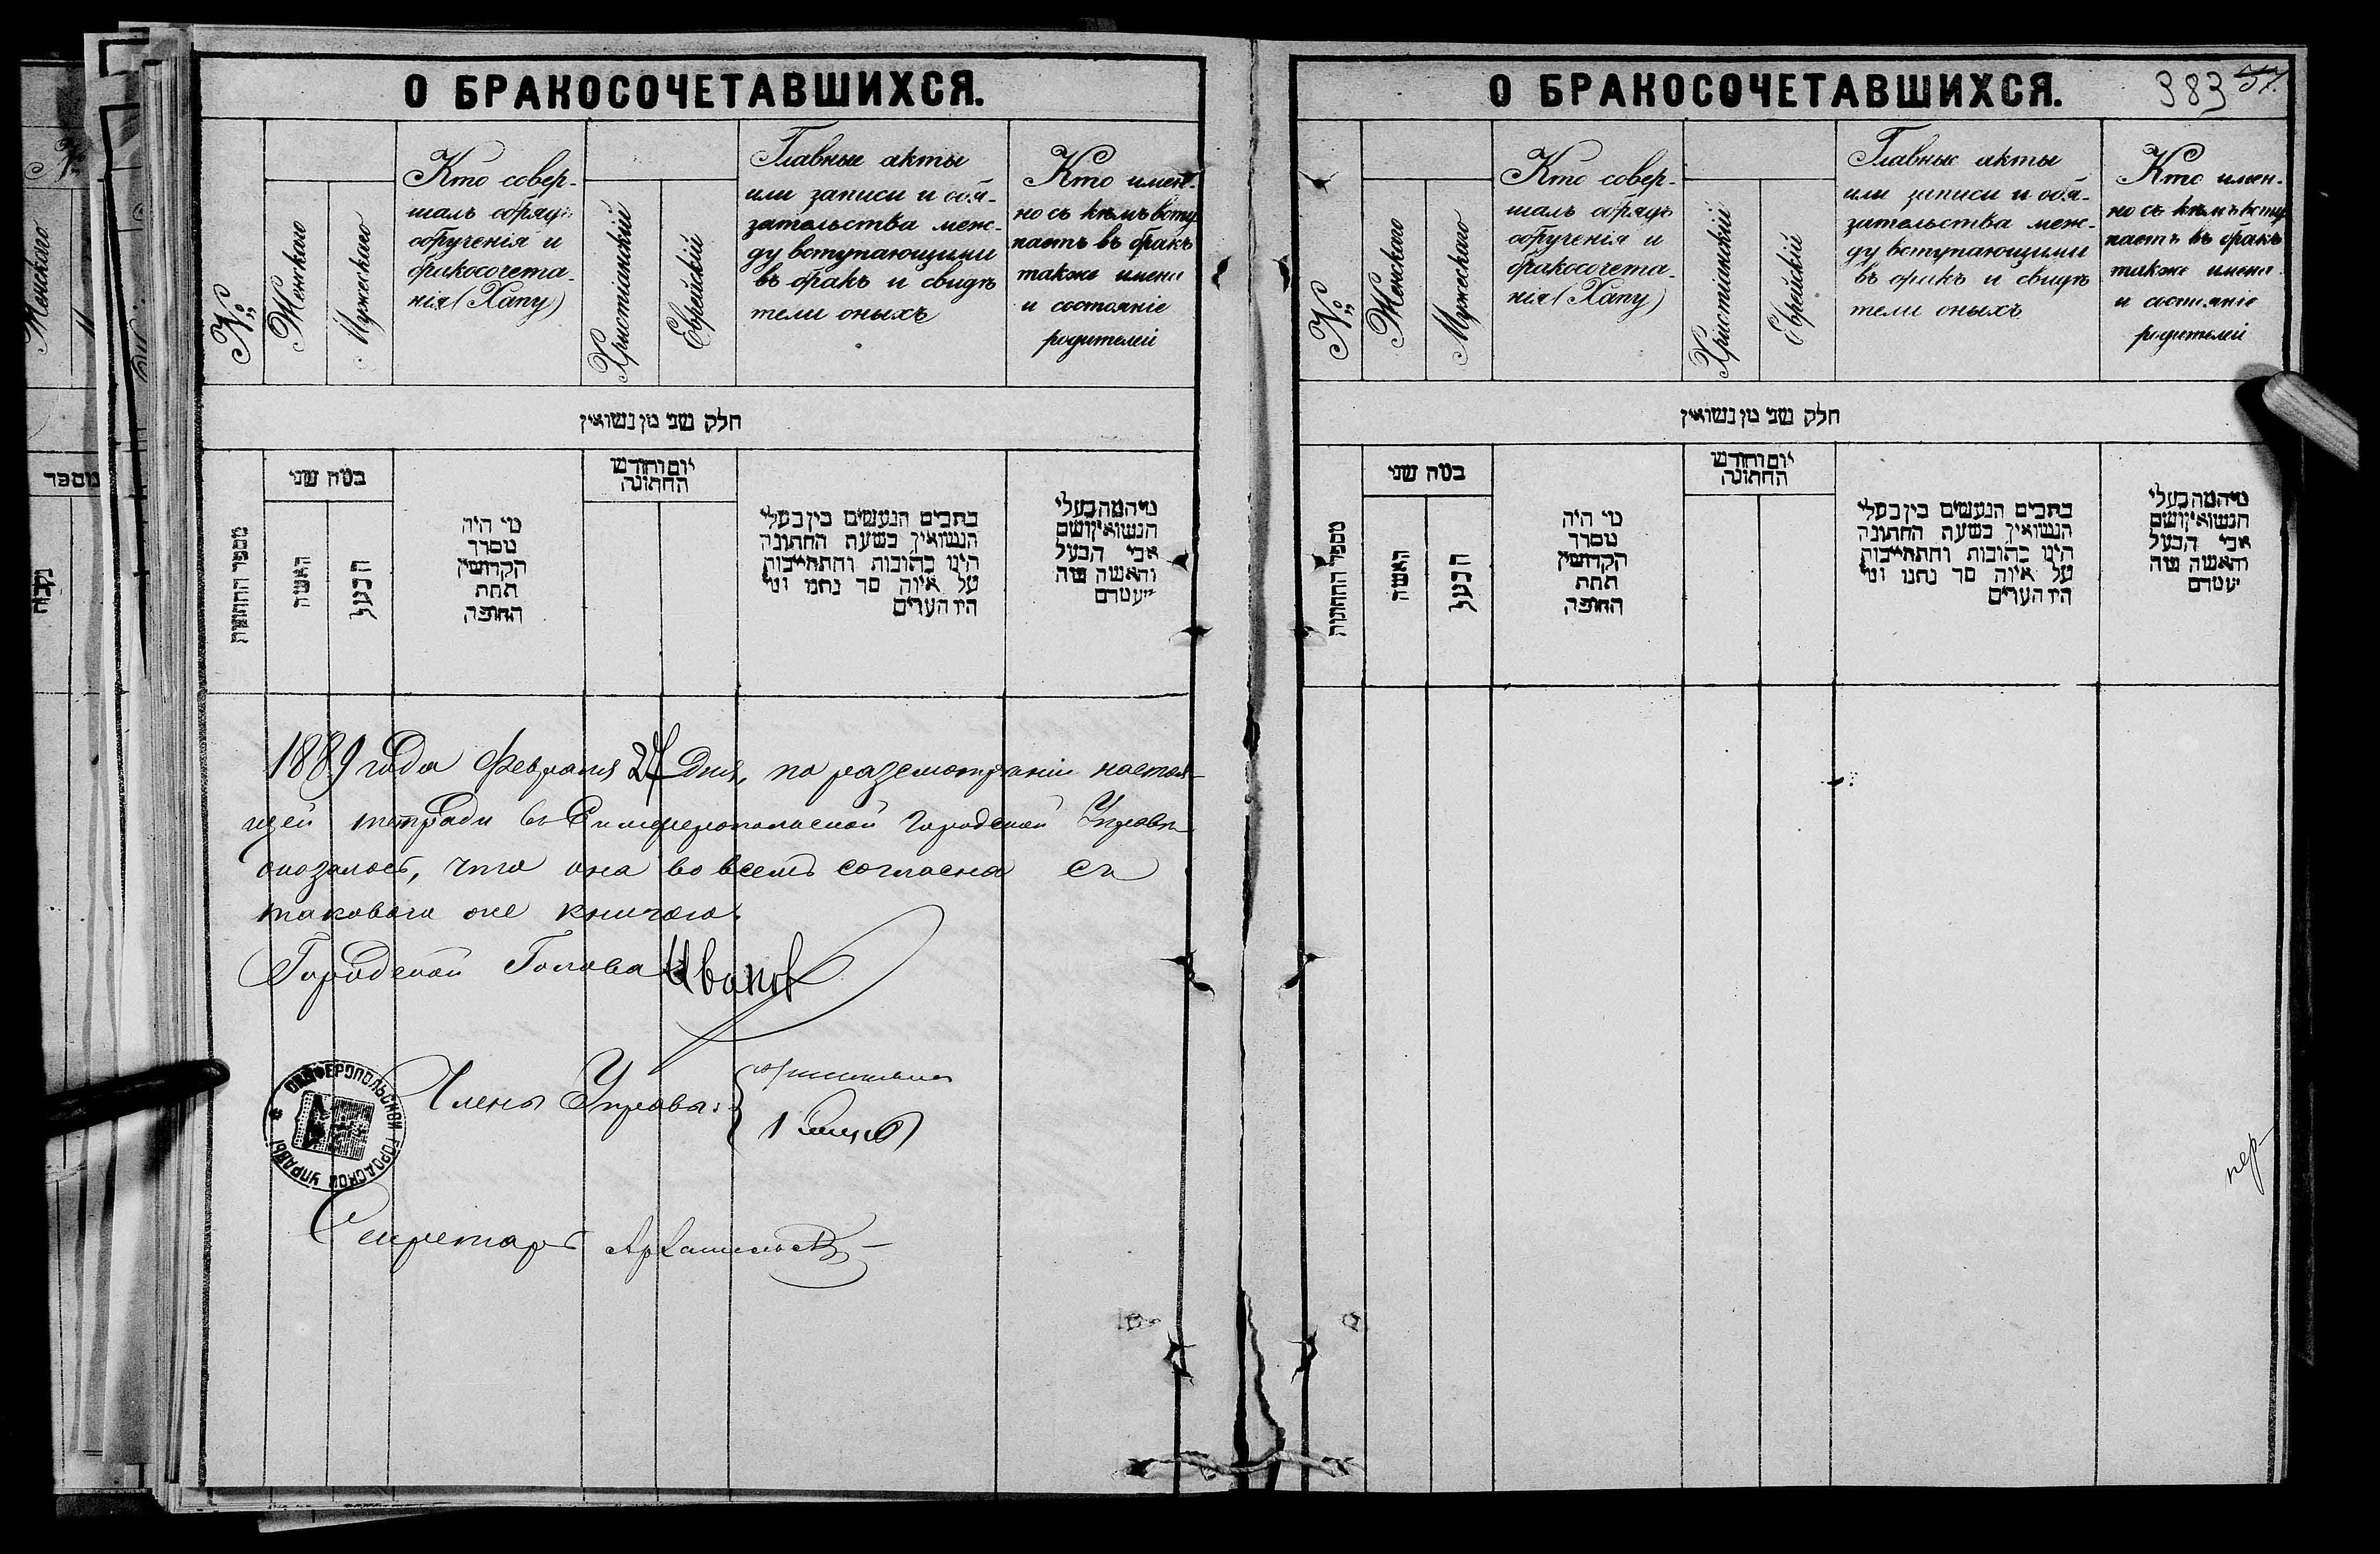 О БРАКОСОЧЕТАВШИХСЯ.
№
Женскаго
Мужескаго
Кто совер-
шалъ обрядъ
обрученія и
бракосочета-
нія (Хапу)
Христіанскій
Еврейскій
Главные акты
или записи и обя-
зательства меж-
ду вступающими
въ бракъ и свидѣ
тели оныхъ
Кто имен-
но съ кѣмъ всту
паетъ въ бракъ
также имена
и состояніе
родителей
חלק שני מן נשואין
מספר החתונות
במה שני
האשה
הבעל
מי היה
מסדר
הקדושין
תחת
החופה
יום וחודש
החתונה
כתבים הנעשים בין בעלי
הנשואין בשעת החתונה
היינו כתובות והתחייבות
על איזה סך נתנו ומי
היו העדים
מי המה בעלי
הנשואין ושם
אבי הבעל
והאשה ומה
מעמדם
1889 года Февраля 27 дня, по разсмотрѣніи настоя-
щей тетради въ Симферопольской Городской Управѣ
оказалось, что она во всемъ согласна съ
таковою же книгою.
Городской Голова Иванов
Члены Управы:
СИМФЕРОПОЛЬСКОЙ ГОРОДСКОЙ УПРАВЫ
Секретарь
О БРАКОСОЧЕТАВШИХСЯ.
383 57.
№
Женскаго
Мужескаго
Кто совер-
шалъ обрядъ
обрученія и
бракосочета-
нія (Хапу)
Христіанскій
Еврейскій
Главные акты
или записи и обя-
зательства меж-
ду вступающими
въ бракъ и свидѣ
тели оныхъ
Кто имен-
но съ кѣмъ всту
паетъ въ бракъ
также имена
и состояніе
родителей
חלק שני מן נשואין
מספר החתונות
במה שני
האשה
הבעל
מי היה
מסדר
הקדושין
תחת
החופה
יום וחודש
החתונה
כתבים הנעשים בין בעלי
הנשואין בשעת החתונה
היינו כתובות והתחייבות
על איזה סך נתנו ומי
היו העדים
מי המה בעלי
הנשואין ושם
אבי הבעל
והאשה ומה
מעמדם
пер-